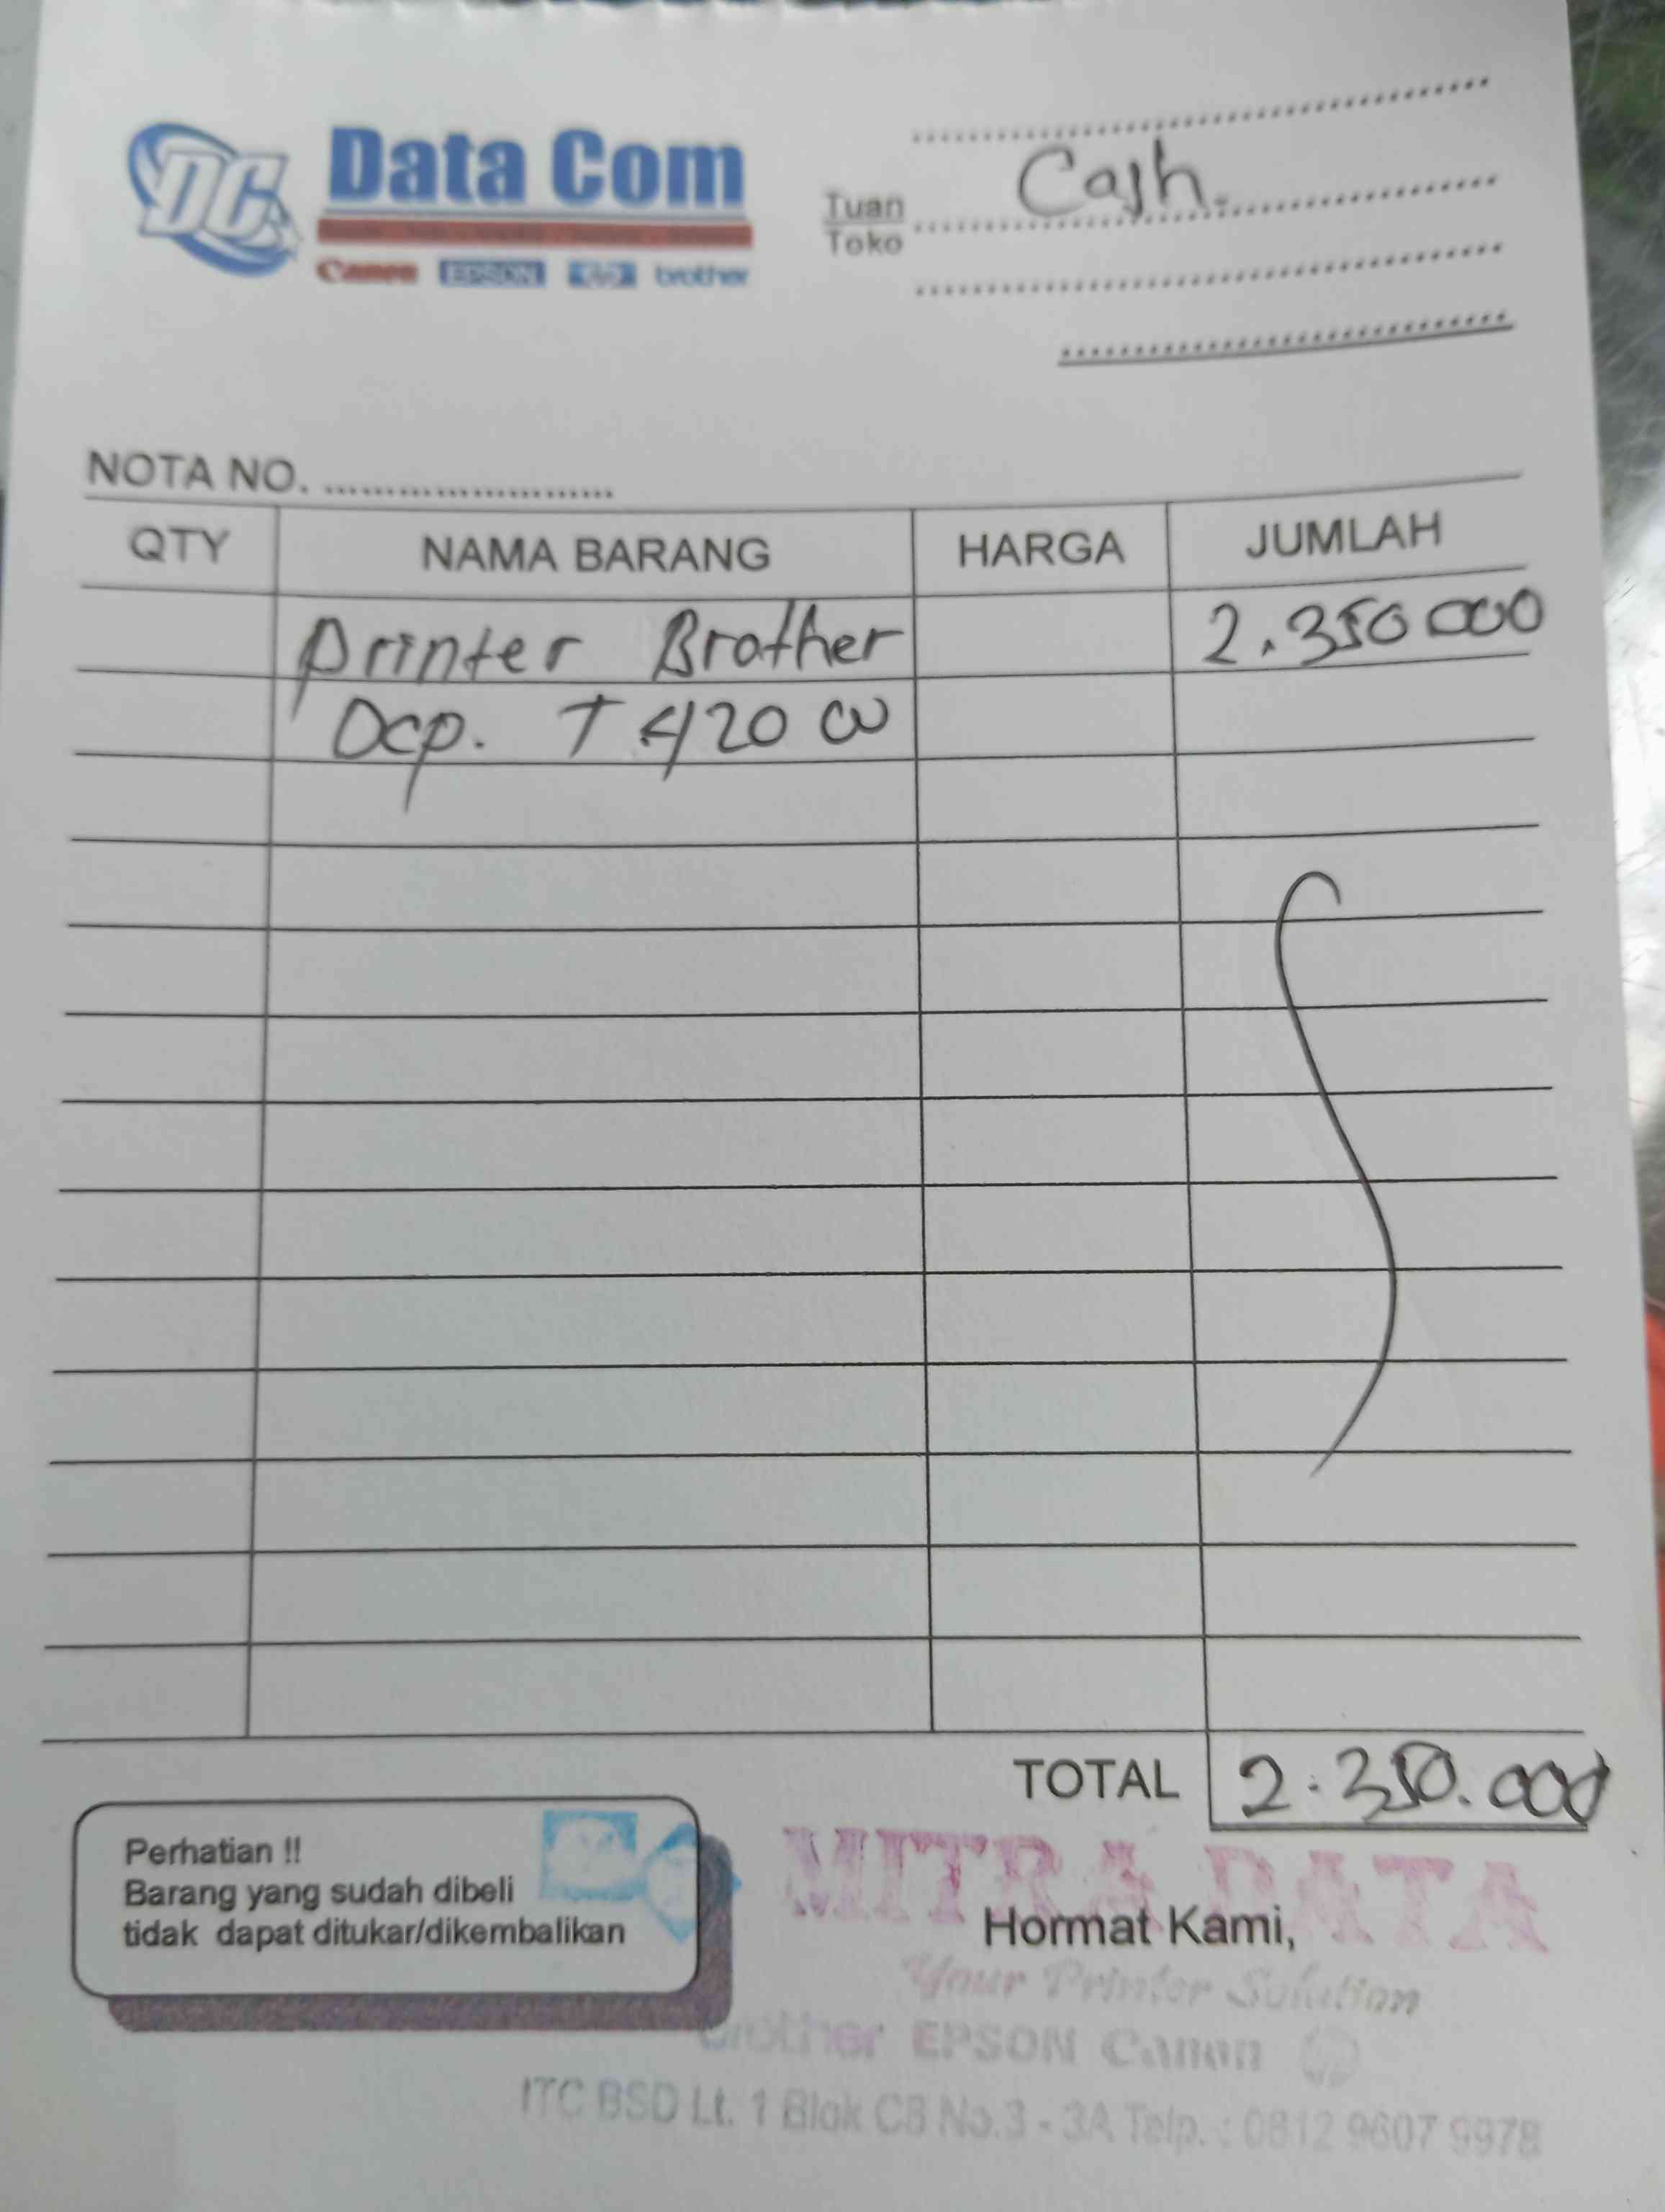 DC
Data Com
Canon EPSON hp brother
Cash.
Tuan
Toko
NOTA NO. ........................
QTY NAMA BARANG HARGA JUMLAH
Printer Brother 2.350 000
Dcp. T 420 W
TOTAL 2.350.000
Perhatian !!
Barang yang sudah dibeli
tidak dapat ditukar/dikembalikan
MITRA DATA
Hormat Kami,
Your Printer Solution
brother EPSON Canon hp
ITC BSD Lt. 1 Blok C8 No.3 - 3A Telp. : 0812 9607 9978